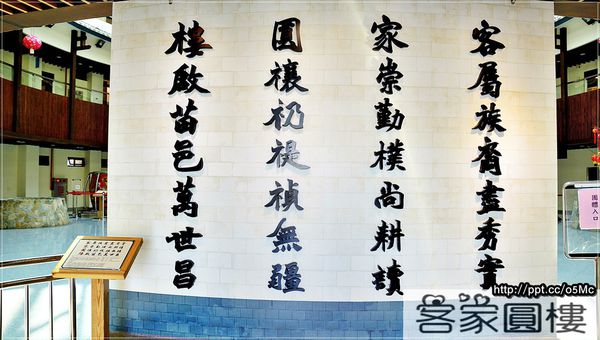 客屬族裔盡秀實
家崇勤樸尚耕讀
圓禳礽禔禎無疆
樓啟苗邑萬世昌
團體入口
http://ppt.cc/o5Mc
客家圓樓